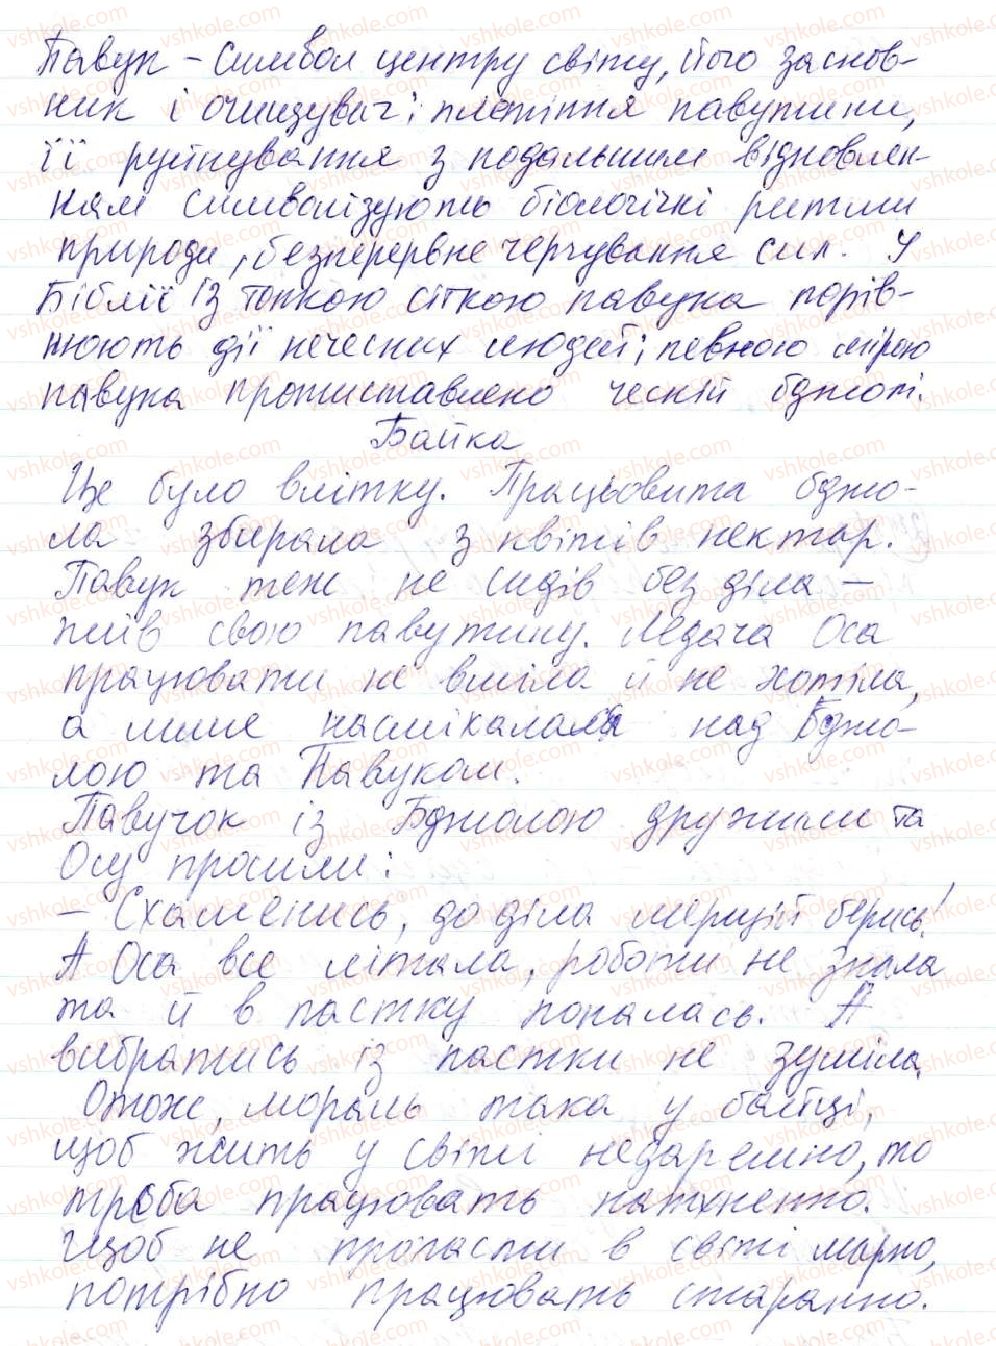 Павук – символ центру світу, його заснов-
ник і очищувач; плетіння павутини,
її руйнування з подальшим відновлен-
ням символізують біологічні ритми
природи, безперервне чергування сил. У
Біблії із тонкою сіткою павука порів-
нюють дії нечесних людей; певною мірою
павука протиставлено чесній бджолі.
Байка
Це було влітку. Працьовита бджо-
ла збирала з квітів нектар.
Павук теж не сидів без діла –
плів свою павутину. Ледача Оса
працювати не вміла й не хотіла,
а лише насміхалася над Бджо-
лою та Павуком.
Павучок із Бджолою дружили та
Осу просили:
– Схаменись, до діла мерщій берись!
А Оса все літала, роботи не знала
та й в пастку попалась. А
вибратись із пастки не зуміла.
Отож, мораль така у байці,
щоб жить у світі недаремно, то
треба працювать натхненно.
Щоб не пропасти в світі марно,
потрібно працювать старанно.